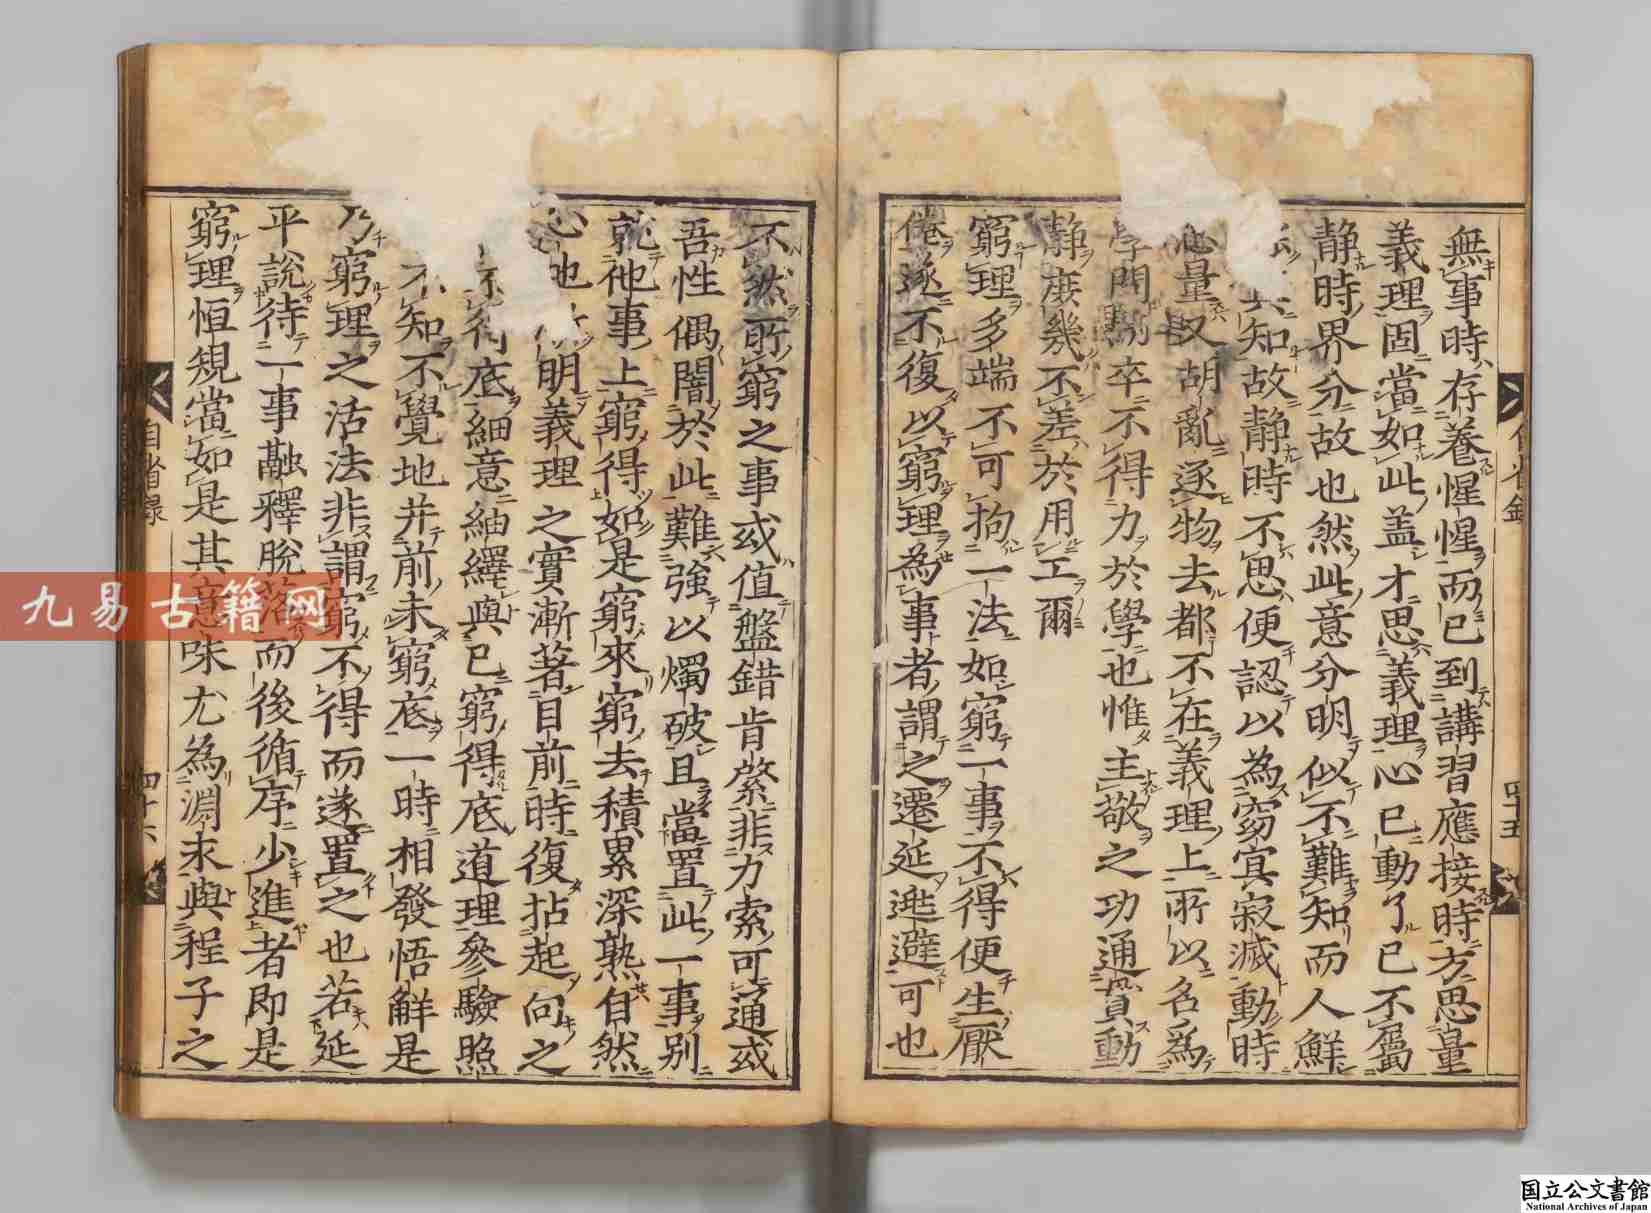 無事時存養惺惺而已到講習應接時方思量
義理固當如此盖才思義理心已動了已不屬
靜時界分故也然此意分明似不難知而人鮮
真知故靜時不思便認以為窈冥寂滅動時
思量又胡亂逐物去都不在義理上所以名爲
學問卒不得力於學也惟主敬之功通貫動
靜庶幾不差於用工爾
窮理多端不可拘一法如窮一事不得便生厭
倦遂不復以窮理為事者謂之遷延逃避可也
不然所窮之事或值盤錯肯綮非力索可通或
吾性偶闇於此難強以燭破且當置此一事別
就他事上窮得如是窮來窮去積累深熟自然
心地明義理之實漸著目前時復拈起向之
窮不得底細意紬繹與已窮得底道理參驗照
不知不覺地并前未窮底一時相發悟解是
乃窮理之活法非謂窮不得而遂置之也若延
平說待一事融釋脫落而後循序少進者即是
窮理恒規當如是其意味尤為淵永與程子之
自省錄
四十五
自省錄
四十六
九易古籍网
国立公文書館
National Archives of Japan